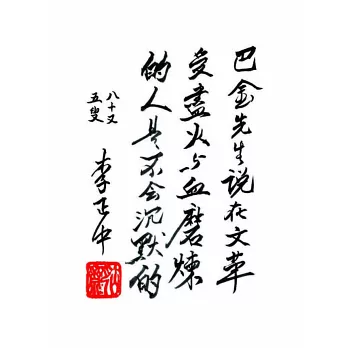 巴金先生说在文革
受盡火与血磨煉
的人是不会沉默的
八十又
五叟
李正中